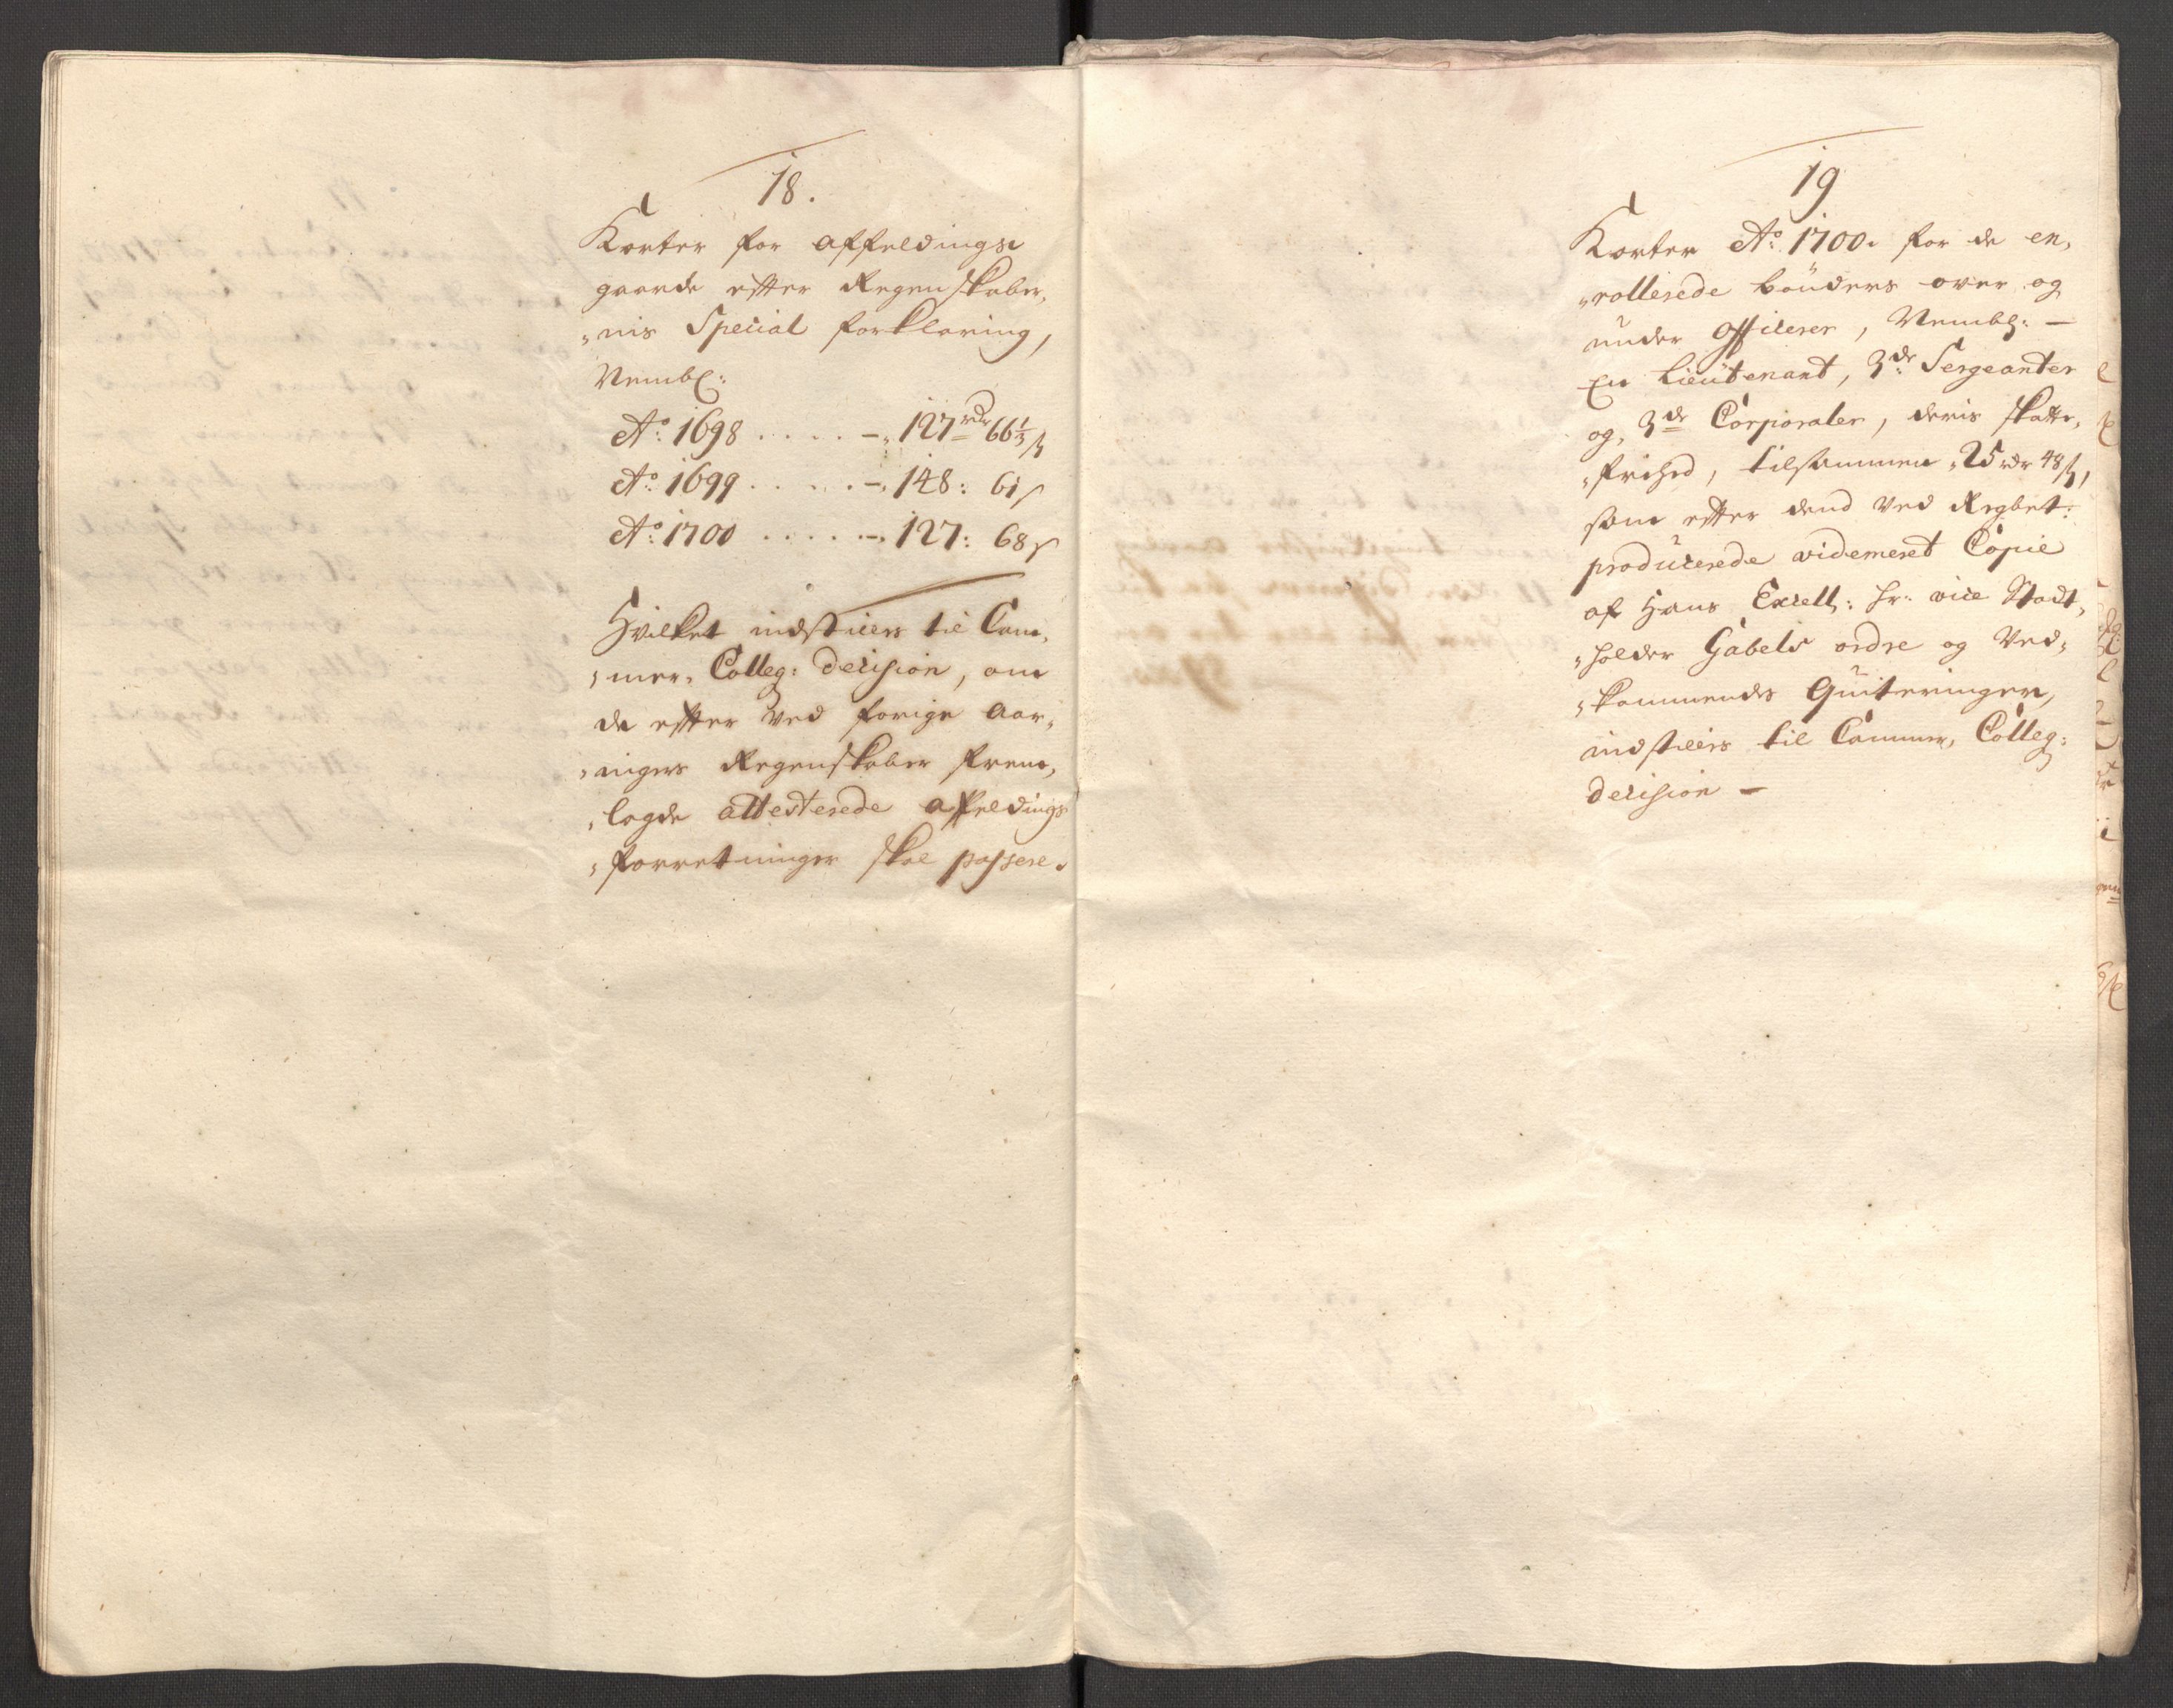 18.
Korter for affeldings
gaarde efter Regenskaber,
"nis Special forklaring,
Nembl:
Ao: 1698 . . . . -" 127 rdr 66 1/3 ß
Ao: 1699 . . . . -" 148: 61 ß
Ao: 1700 . . . . -" 127: 68 ß
Hvilket indstilles til Cam,
"mer, Colleg: decision, om
de efter ved forige Aar,
"ringers Regenskaber frem,
"lagde attesterede affeldings
"forretninger skal passere.
19
Korter Ao: 1700. for de en,
"rollerede bönders over og
under officerer, Nembl: -
En Lieutenant, 3de Sergeanter
og, 3de Corporaler, deris skatte,
"frihed, tilsammen 25 rdr 48 ß,
som efter dend ved Regbet:
producerede videmeret Copie
af Hans Excell: Hr: vice Stadt,
"holder Gabels ordre og Ved,
"kommendes Quiteringer,
indstilles til Cammer, Colleg:
decision -